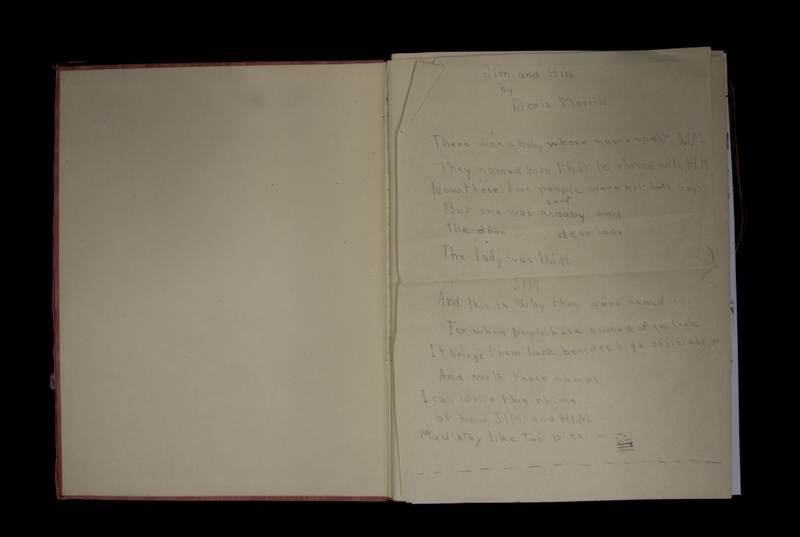 Jim and Him
by
Doris Merrill
There was a baby whose name spelt J.I.M.
They named him that to rhyme with H.I.M.
Now these two people were not both boys
sweet
But one was a baby and
The other " dear lady
The lady was H.I.M.
J.I.M.
And this is why they were named so.
For when people have a word of initials
It brings them luck besides high officials.
And with these names
I can write this rhyme
of how J.I.M. and H.I.M.
Must stay like two pins. —